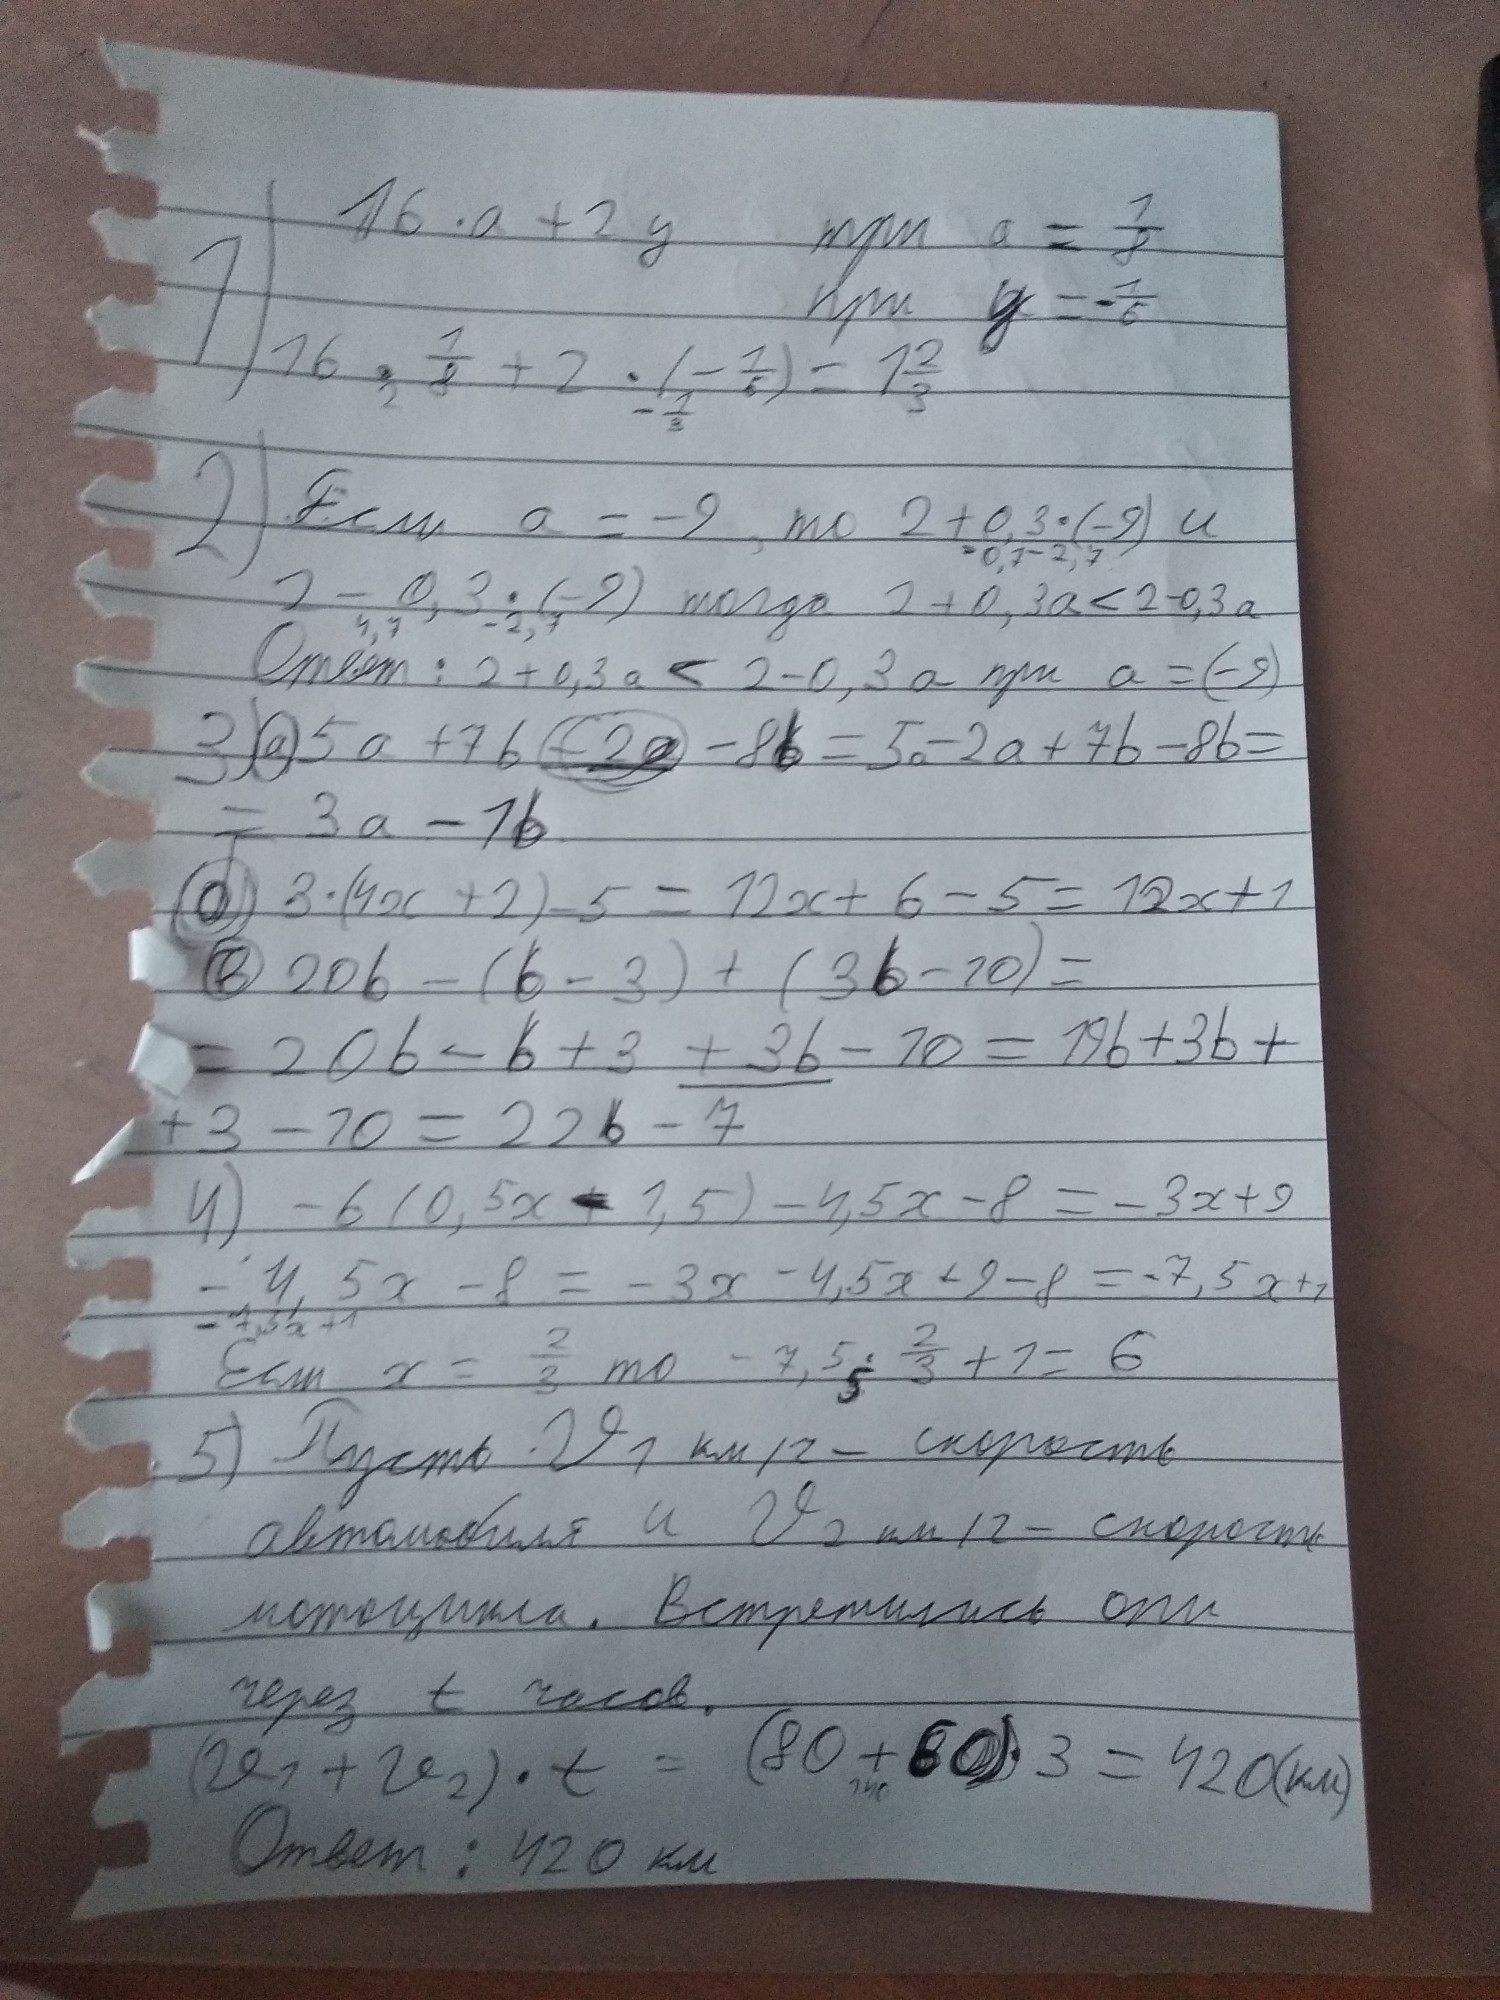 1) 16·a+2y при a = 1/8
при y = -1/6
16 · 1/8 + 2 · (-1/6) = 1 2/3
2 -1/3
2) Если a = -9, то 2+0,3·(-9) и
=0,7-2,7
2 - 0,3·(-9) тогда 2+0,3a<2-0,3a
4,7 -2,7
Ответ: 2+0,3a < 2-0,3a при a = (-9)
3) а) 5a + 7b - 2a - 8b = 5a - 2a + 7b - 8b =
= 3a - 1b
б) 3·(4x + 2) - 5 = 12x + 6 - 5 = 12x + 1
в) 20b - (b - 3) + (3b - 10) =
= 20b - b + 3 + 3b - 10 = 19b + 3b +
+ 3 - 10 = 22b - 7
4) -6(0,5x - 1,5) - 4,5x - 8 = -3x + 9
- 4,5x - 8 = -3x - 4,5x + 9 - 8 = -7,5x + 1
-7,5x + 1
Если x = 2/3 то -7,5 · 2/3 + 1 = 6
5
5) Пусть V1 км/ч - скорость
автомобиля и V2 км/ч - скорость
мотоцикла. Встретились они
через t часов.
(V1 + V2) · t = (80 + 60) · 3 = 420(км)
140
Ответ: 420 км